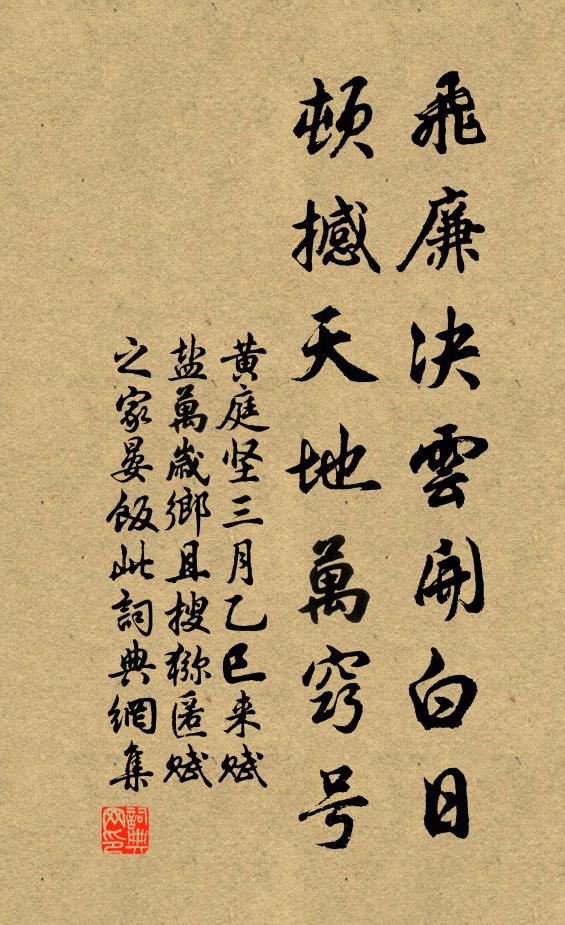 飛廉決雲開白日
頓撼天地萬竅号
黄庭坚三月乙巳来赋
盐萬歲鄉且搜狝匿赋
之家晏飯此詞典網集
詞典网印